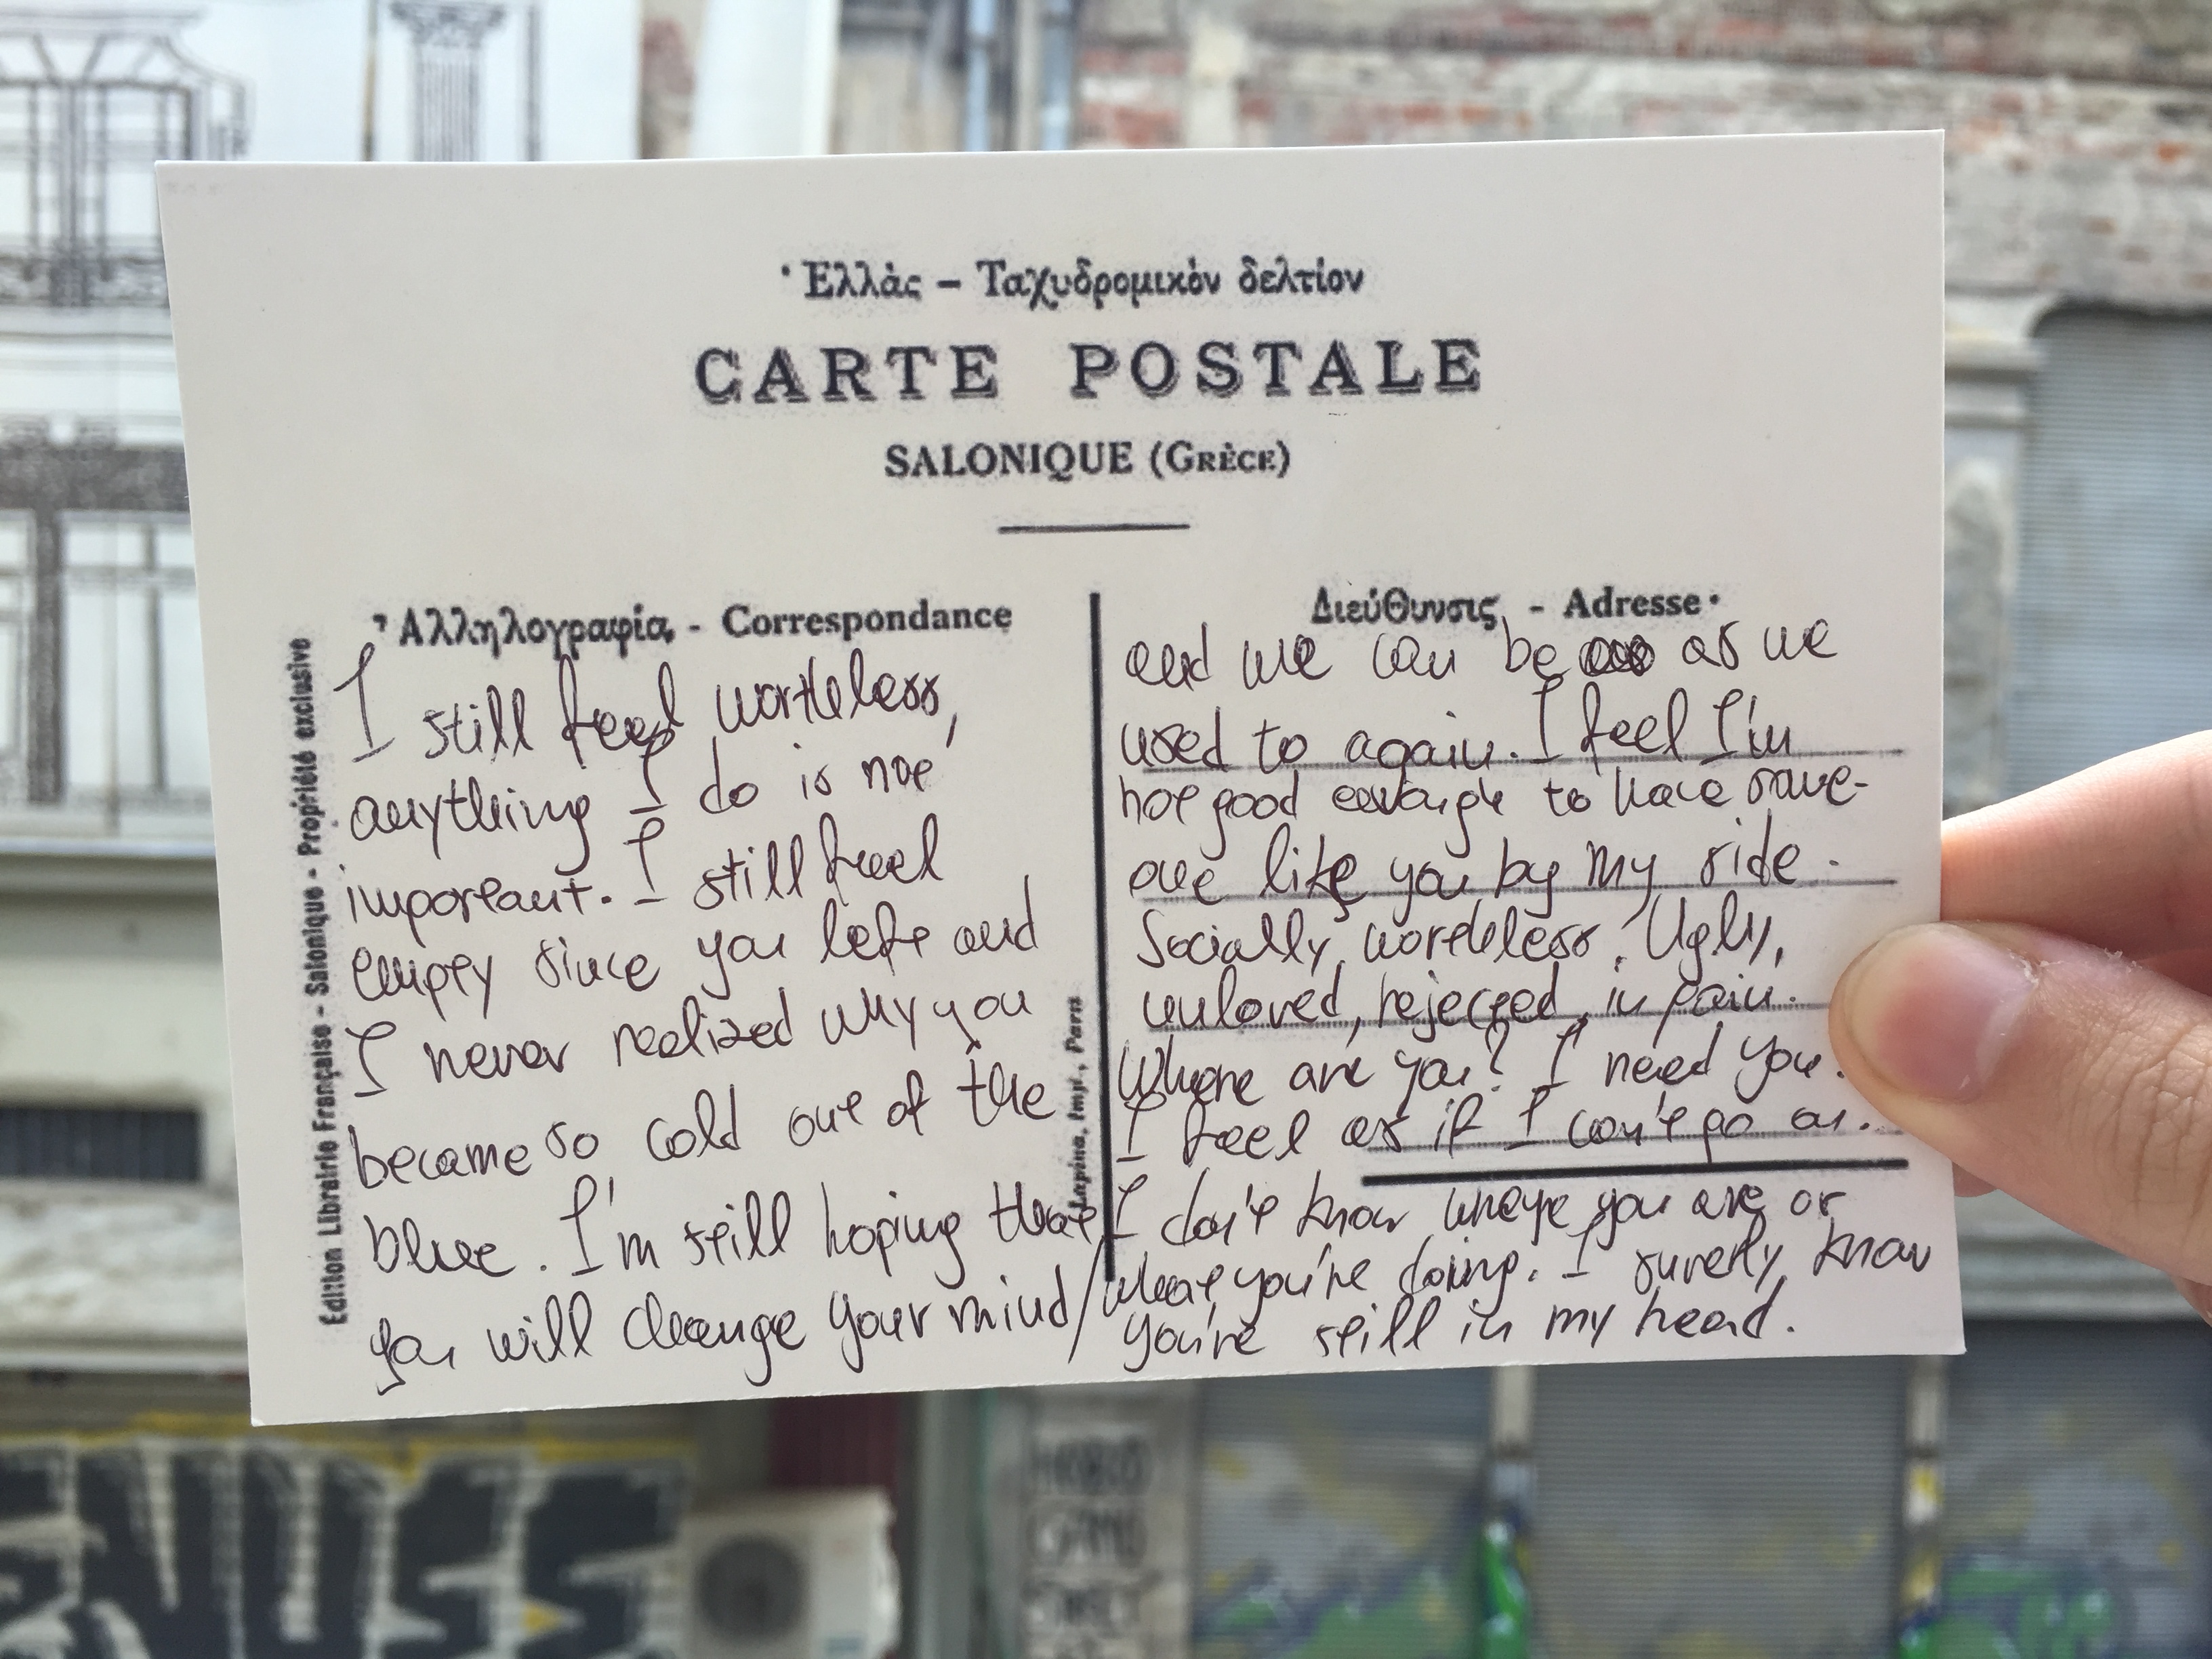 Ἑλλὰς – Ταχυδρομικὸν δελτίον
CARTE POSTALE
SALONIQUE (GRÈCE)
Ἀλληλογραφία, - Correspondance
I still feel worthless,
anything I do is not
important. I still feel
empty since you left and
I never realized why you
became so cold out of the
blue. I'm still hoping that
you will change your mind/
Διεύθυνσις - Adresse
and we can be as we
used to again. I feel I'm
not good enough to have some-
one like you by my side.
Socially worthless. Ugly,
unloved, rejected, in pain.
Where are you? I need you.
I feel as if I can't go on.
I don't know where you are or
what you're doing. I surely know
you're still in my head.
Edition Librairie Française - Salonique - Propriété exclusive
Lapina, Imp., Paris